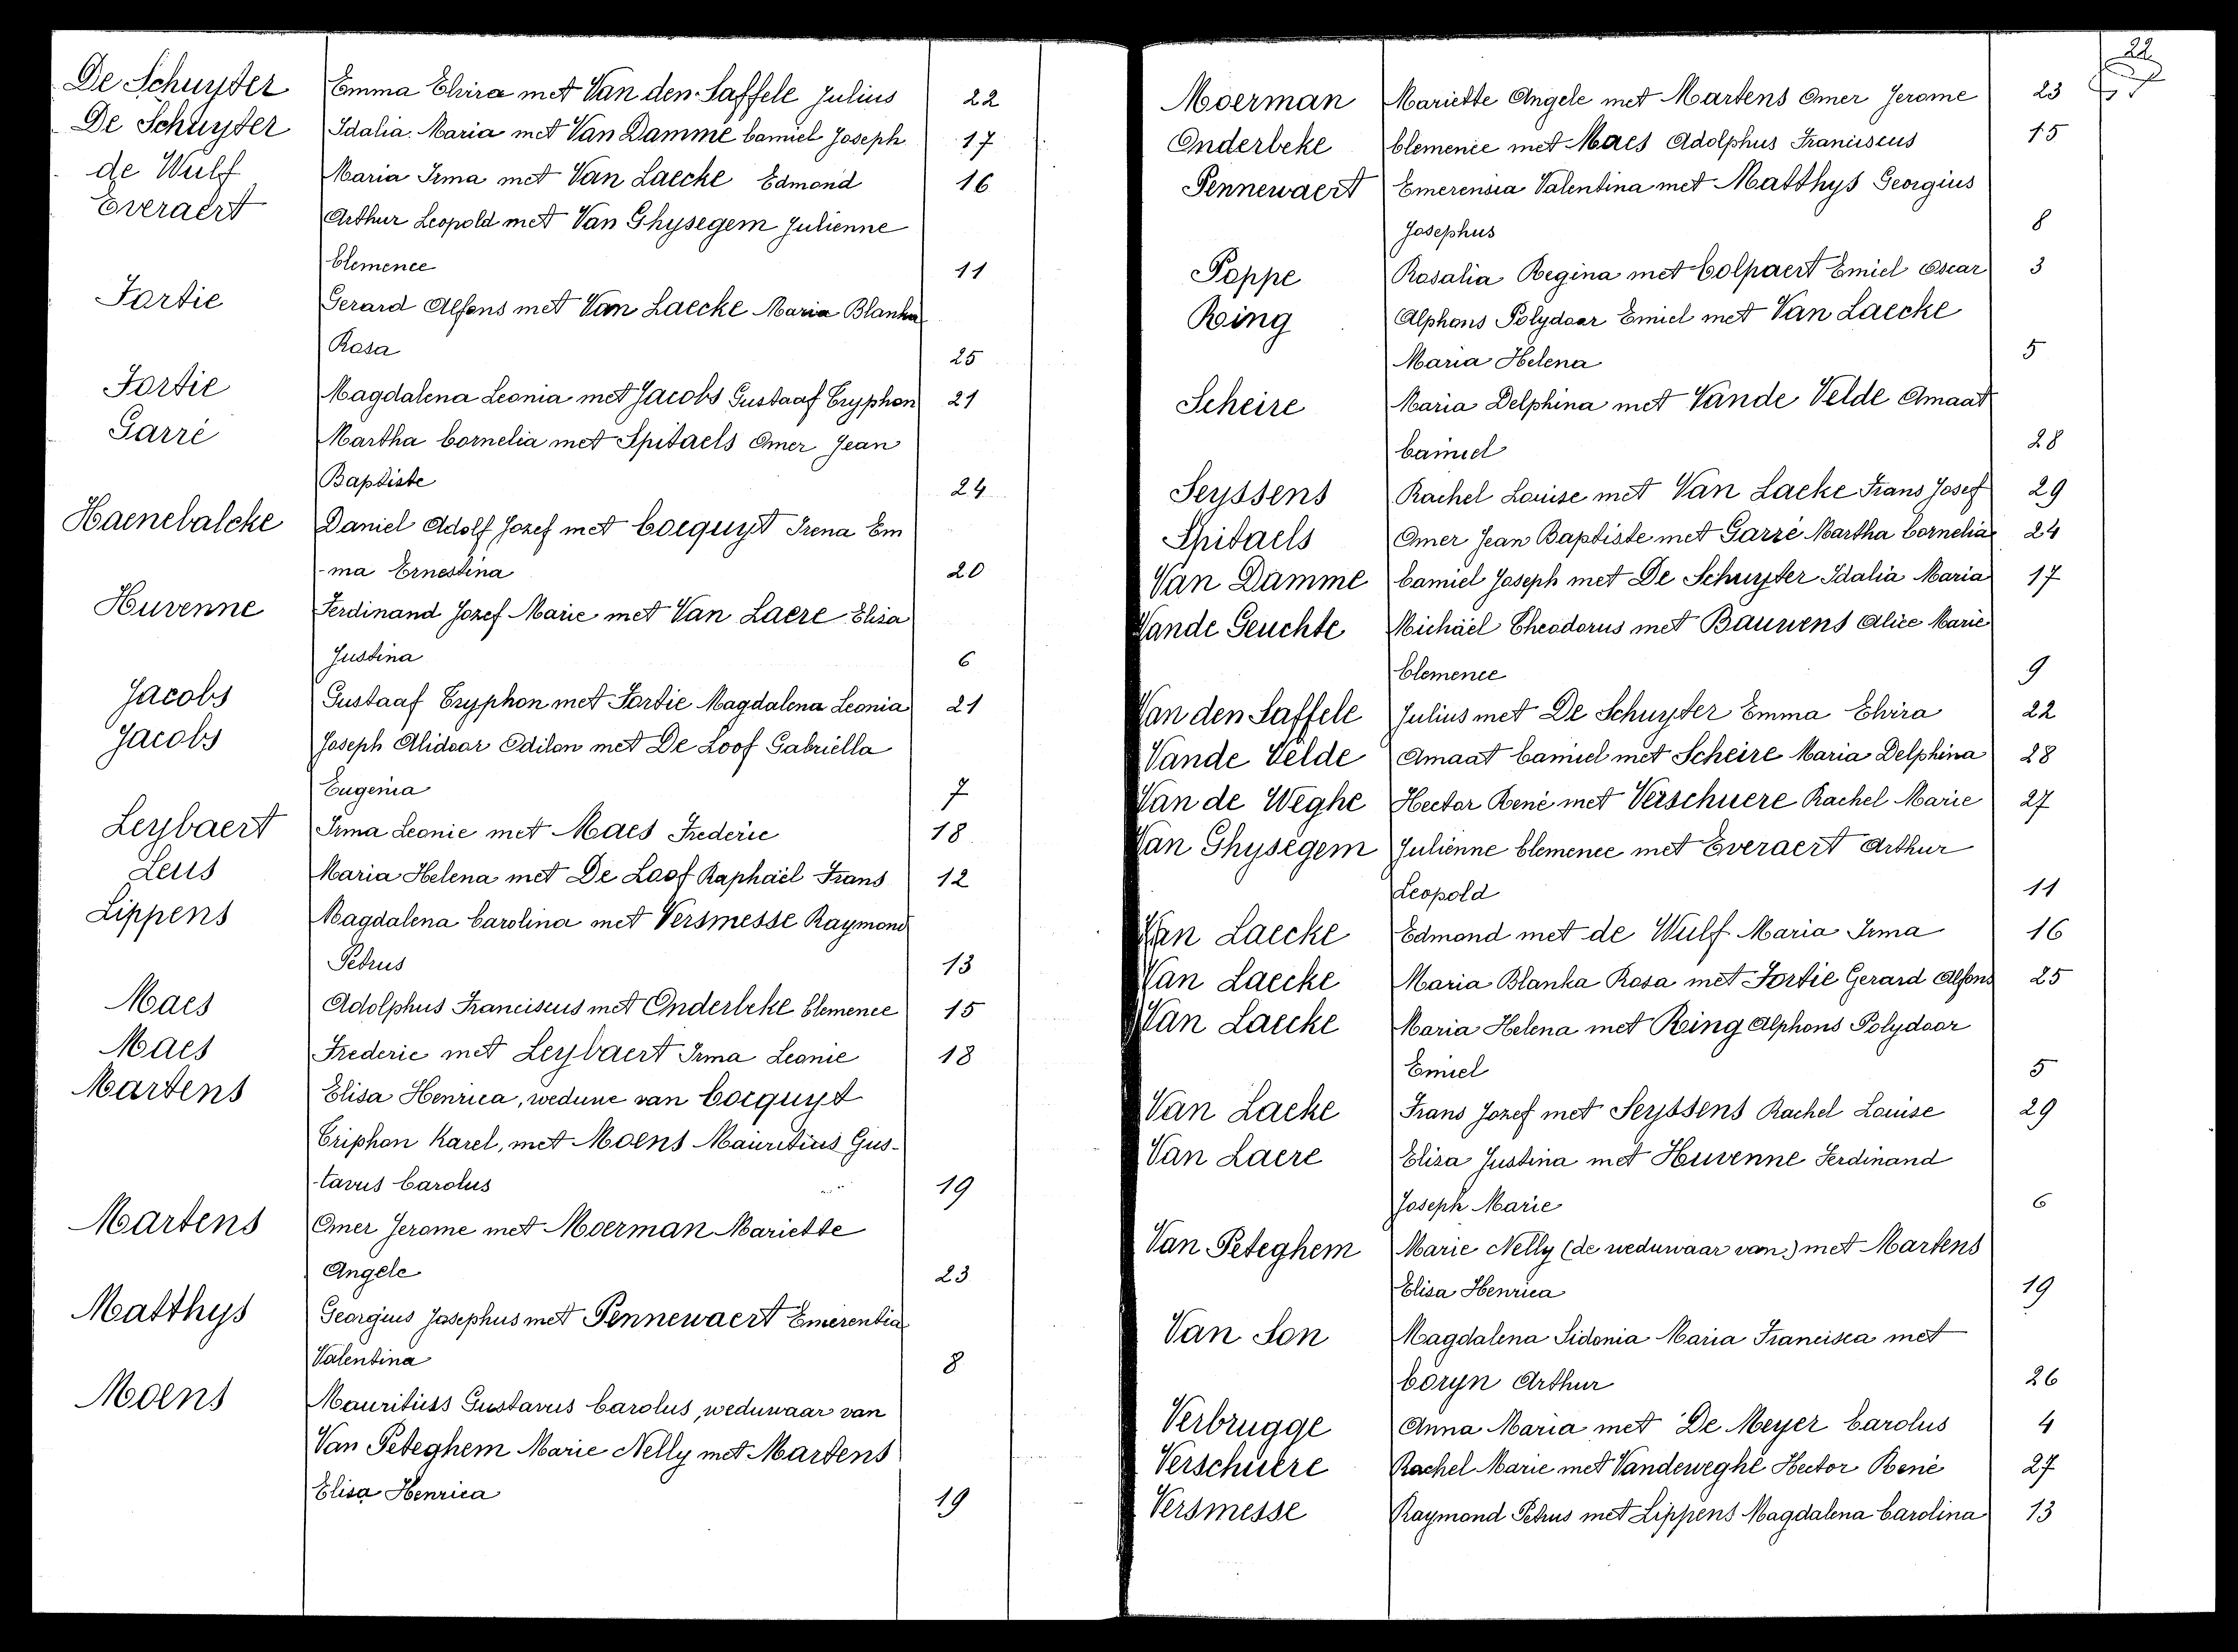 De Schuyter Emma Elvira met Van den Saffele Julius 22
De Schuyter Idalia Maria met Van Damme Camiel Joseph 17
de Wulf Maria Irma met Van Laecke Edmond 16
Everaert Arthur Leopold met Van Ghysegem Julienne
Clemence 11
Fortie Gerard Alfons met Van Laecke Maria Blanka
Rosa 25
Fortie Magdalena Leonia met Jacobs Gustaaf Tryphon 21
Garré Martha Cornelia met Spitaels Omer Jean
Baptiste 24
Haenebalcke Daniel Adolf Jozef met Cocquyt Irena Em
-ma Ernestina 20
Huvenne Ferdinand Jozef Marie met Van Laere Elisa
Justina 6
Jacobs Gustaaf Tryphon met Fortie Magdalena Leonia 21
Jacobs Joseph Alidoor Odilon met De Loof Gabriella
Eugenia 7
Leybaert Irma Leonie met Maes Frederic 18
Leus Maria Helena met De Loof Raphaël Frans 12
Lippens Magdalena Carolina met Versmesse Raymond
Petrus 13
Maes Adolphus Franciscus met Onderbeke Clemence 15
Maes Frederic met Leybaert Irma Leonie 18
Martens Elisa Henrica, weduwe van Cocquyt
Triphon Karel, met Moens Mauritius Gus-
-tavus Carolus 19
Martens Omer Jerome met Moerman Mariette
Angele 23
Matthys Georgius Josephus met Pennewaert Emerentia
Valentina 8
Moens Mauritiuss Gustavus Carolus, weduwaar van
Van Peteghem Marie Nelly met Martens
Elisa Henrica 19
22
Moerman Mariette Angele met Martens Omer Jerome 23
Onderbeke Clemence met Maes Adolphus Franciscus 15
Pennewaert Emerensia Valentina met Matthys Georgius
Josephus 8
Poppe Rosalia Regina met Colpaert Emiel Oscar 3
Ring Alphons Polydoor Emiel met Van Laecke
Maria Helena 5
Scheire Maria Delphina met Vande Velde Amaat
Camiel 28
Seyssens Rachel Louise met Van Lacke Frans Josef 29
Spitaels Omer Jean Baptiste met Garré Martha Cornelia 24
Van Damme Camiel Joseph met De Schuyter Idalia Maria 17
Vande Geuchte Michaël Theodorus met Bauwens Alice Marie
Clemence 9
Van den Saffele Julius met De Schuyter Emma Elvira 22
Vande Velde Amaat Camiel met Scheire Maria Delphina 28
Van de Weghe Hector René met Verschuere Rachel Marie 27
Van Ghysegem Julienne Clemence met Everaert Arthur
Leopold 11
Van Laecke Edmond met de Wulf Maria Irma 16
Van Laecke Maria Blanka Rosa met Fortie Gerard Alfons 25
Van Laecke Maria Helena met Ring Alphons Polydoor
Emiel 5
Van Lacke Frans Jozef met Seyssens Rachel Louise 29
Van Laere Elisa Justina met Huvenne Ferdinand
Joseph Marie 6
Van Peteghem Marie Nelly (de weduwaar van) met Martens
Elisa Henrica 19
Van Son Magdalena Sidonia Maria Francisca met
Coryn Arthur 26
Verbrugge Anna Maria met De Meyer Carolus 4
Verschuere Rachel Marie met Vandeweghe Hector René 27
Versmesse Raymond Petrus met Lippens Magdalena Carolina 13